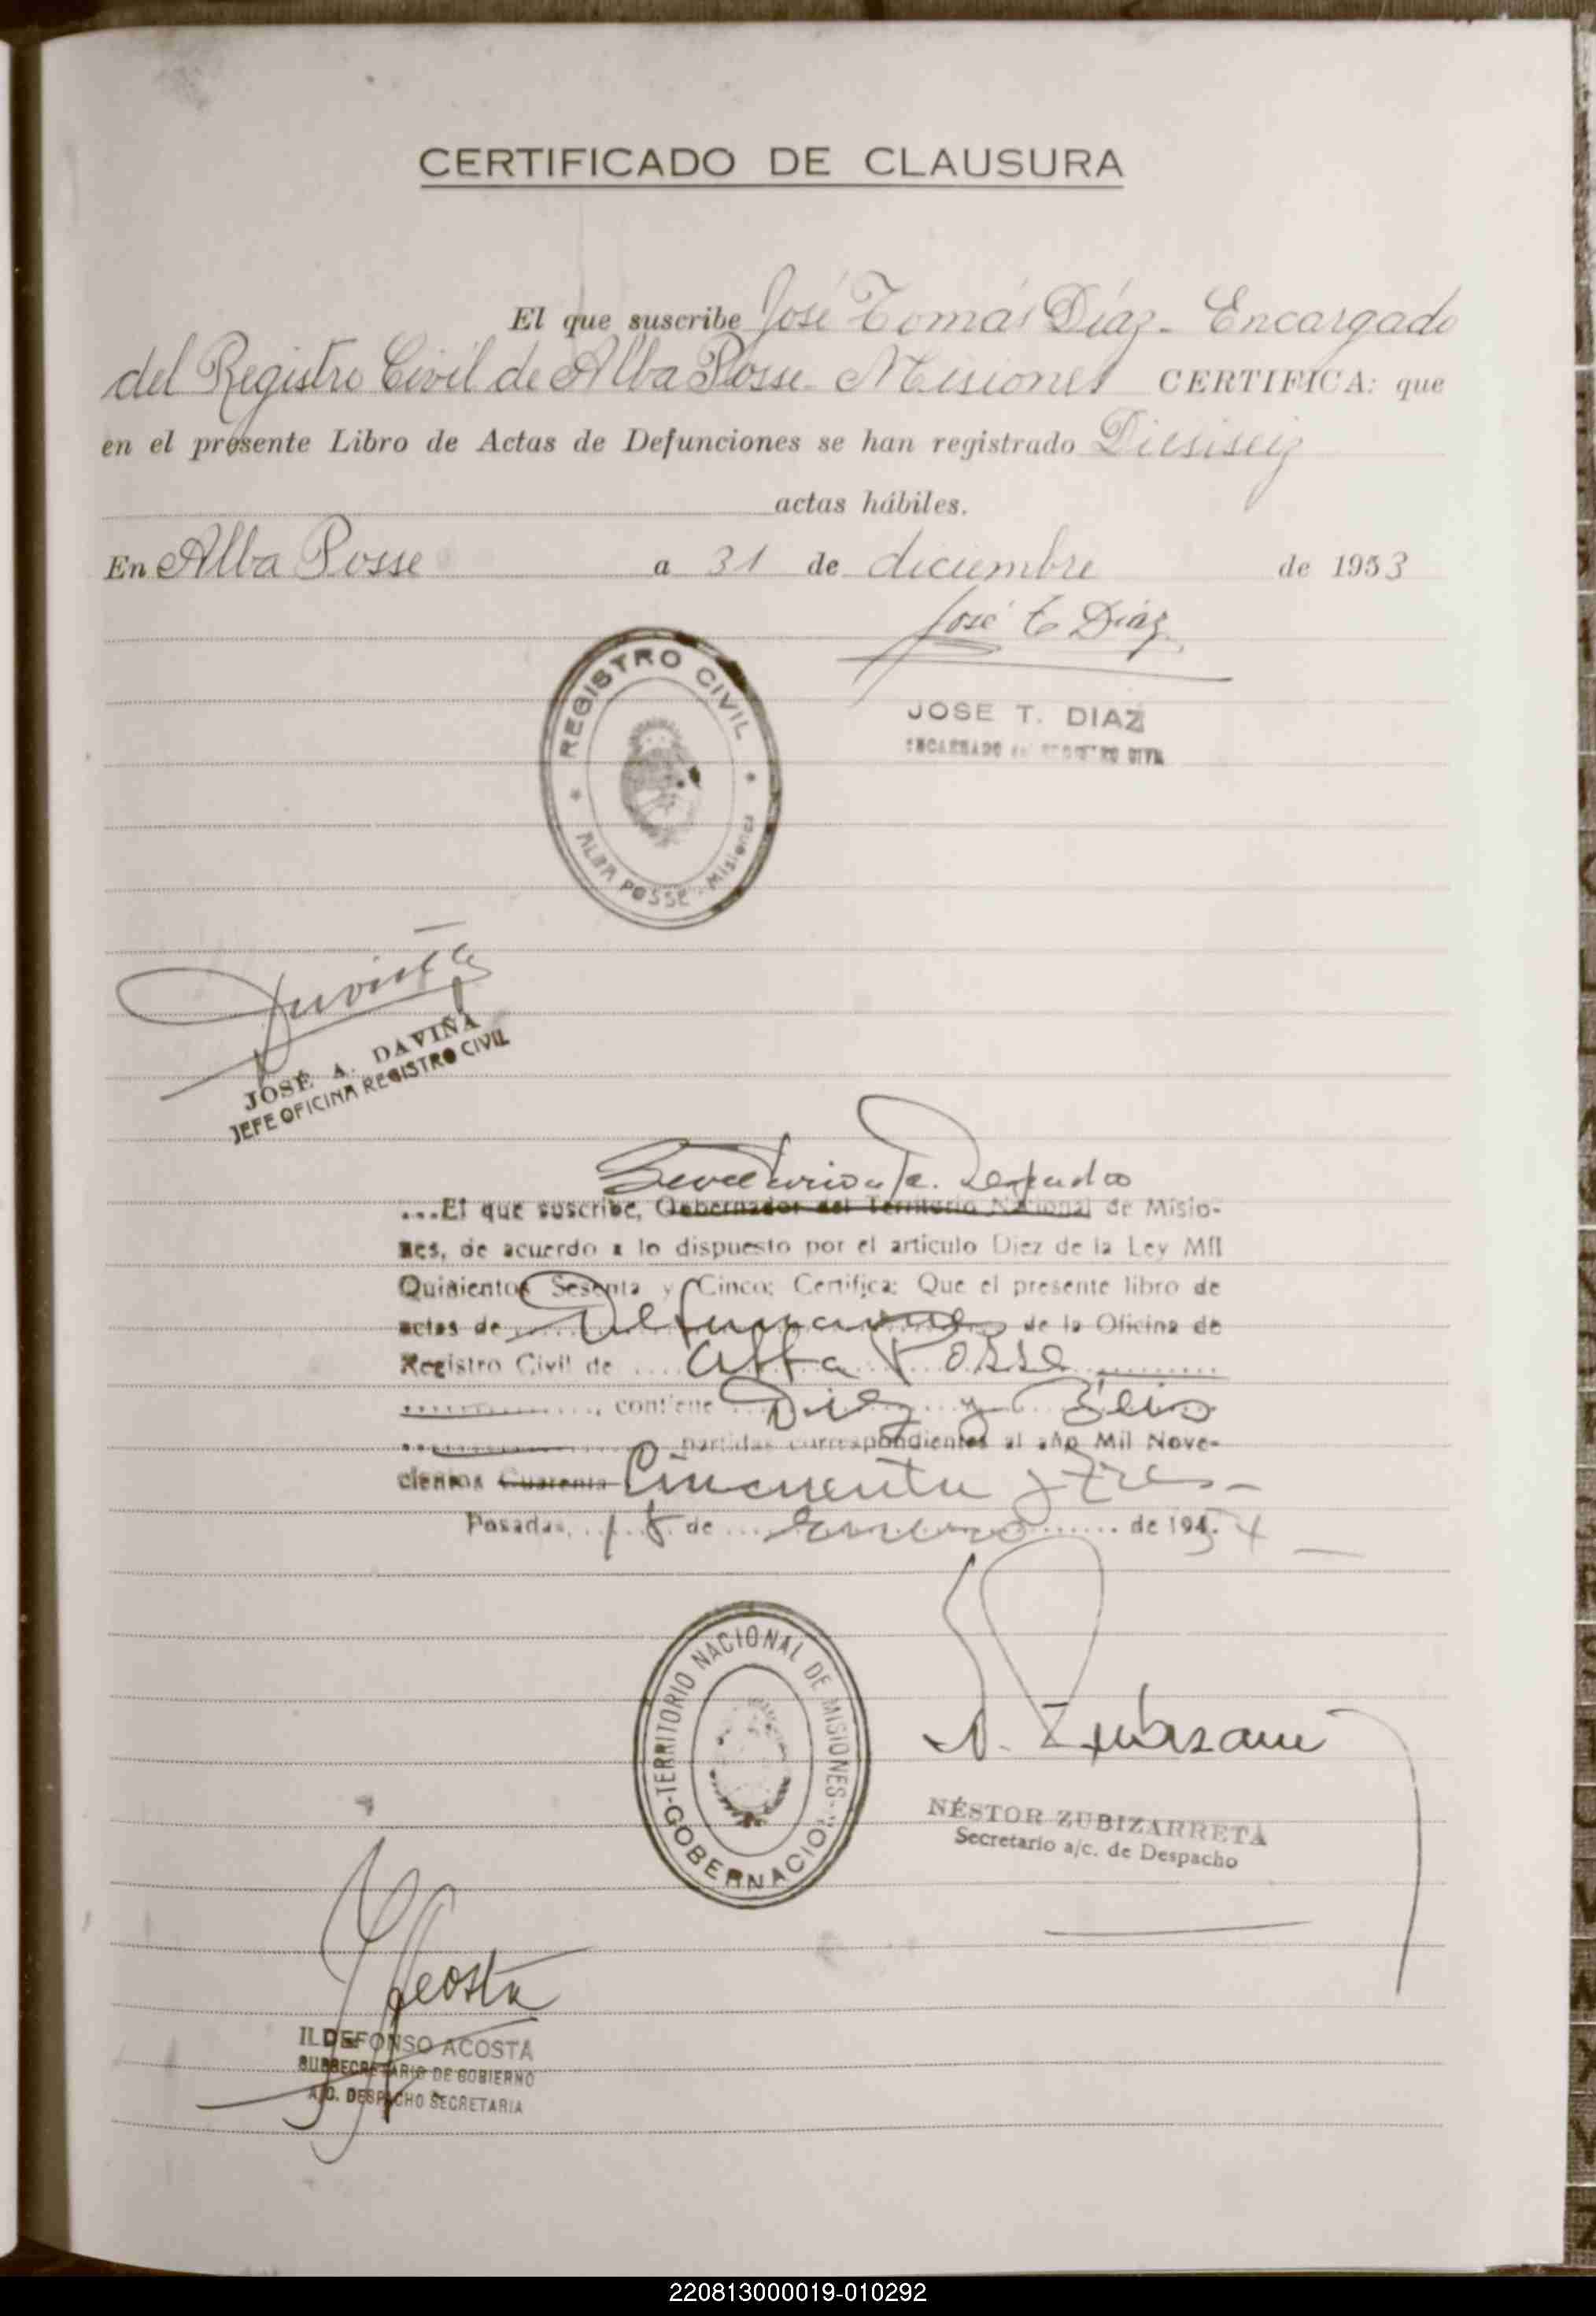 CERTIFICADO DE CLAUSURA
El que suscribe José Tomás Díaz - Encargado
del Registro Civil de Alba Posse - Misiones CERTIFICA: que
en el presente Libro de Actas de Defunciones se han registrado Diesiseis
actas hábiles.
En Alba Posse a 31 de diciembre de 1953
José T Díaz
JOSE T. DIAZ
ENCARGADO del REGISTRO CIVIL
REGISTRO CIVIL
ALBA POSSE - Misiones
JOSÉ A. DAVIÑA
JEFE OFICINA REGISTRO CIVIL
Secretario a/c. Despacho
...El que suscribe, Gobernador del Territorio Nacional de Misio-
nes, de acuerdo a lo dispuesto por el artículo Diez de la Ley Mil
Quinientos Sesenta y Cinco; Certifica: Que el presente libro de
actas de Defunciones de la Oficina de
Registro Civil de Alba Posse
, contiene Diez y Seis
partidas correspondientes al año Mil Nove-
cientos Cuarenta Cincuenta y Tres -
Posadas, 18 de Enero de 1954
TERRITORIO NACIONAL DE MISIONES
GOBERNACION
N. Zubizarreta
NÉSTOR ZUBIZARRETA
Secretario a/c. de Despacho
Acosta
ILDEFONSO ACOSTA
SUBSECRETARIO DE GOBIERNO
A/C. DESPACHO SECRETARIA
220813000019-010292